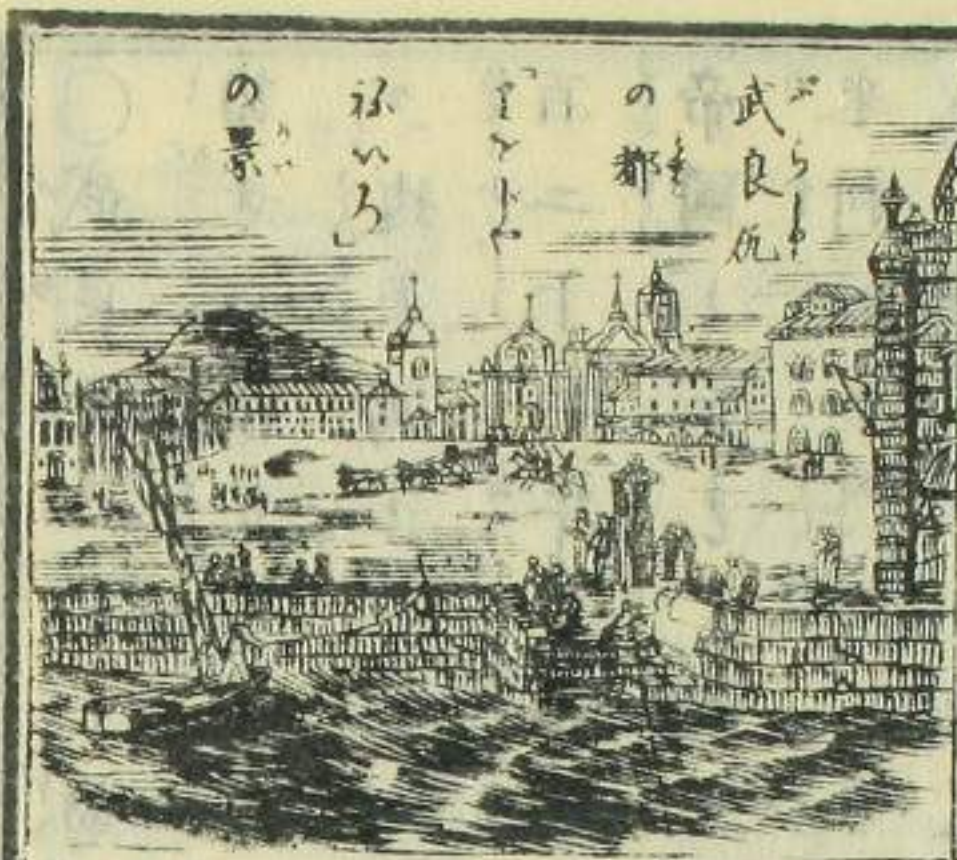 武良尻
の都
「りをじや
ねいろ」
の景